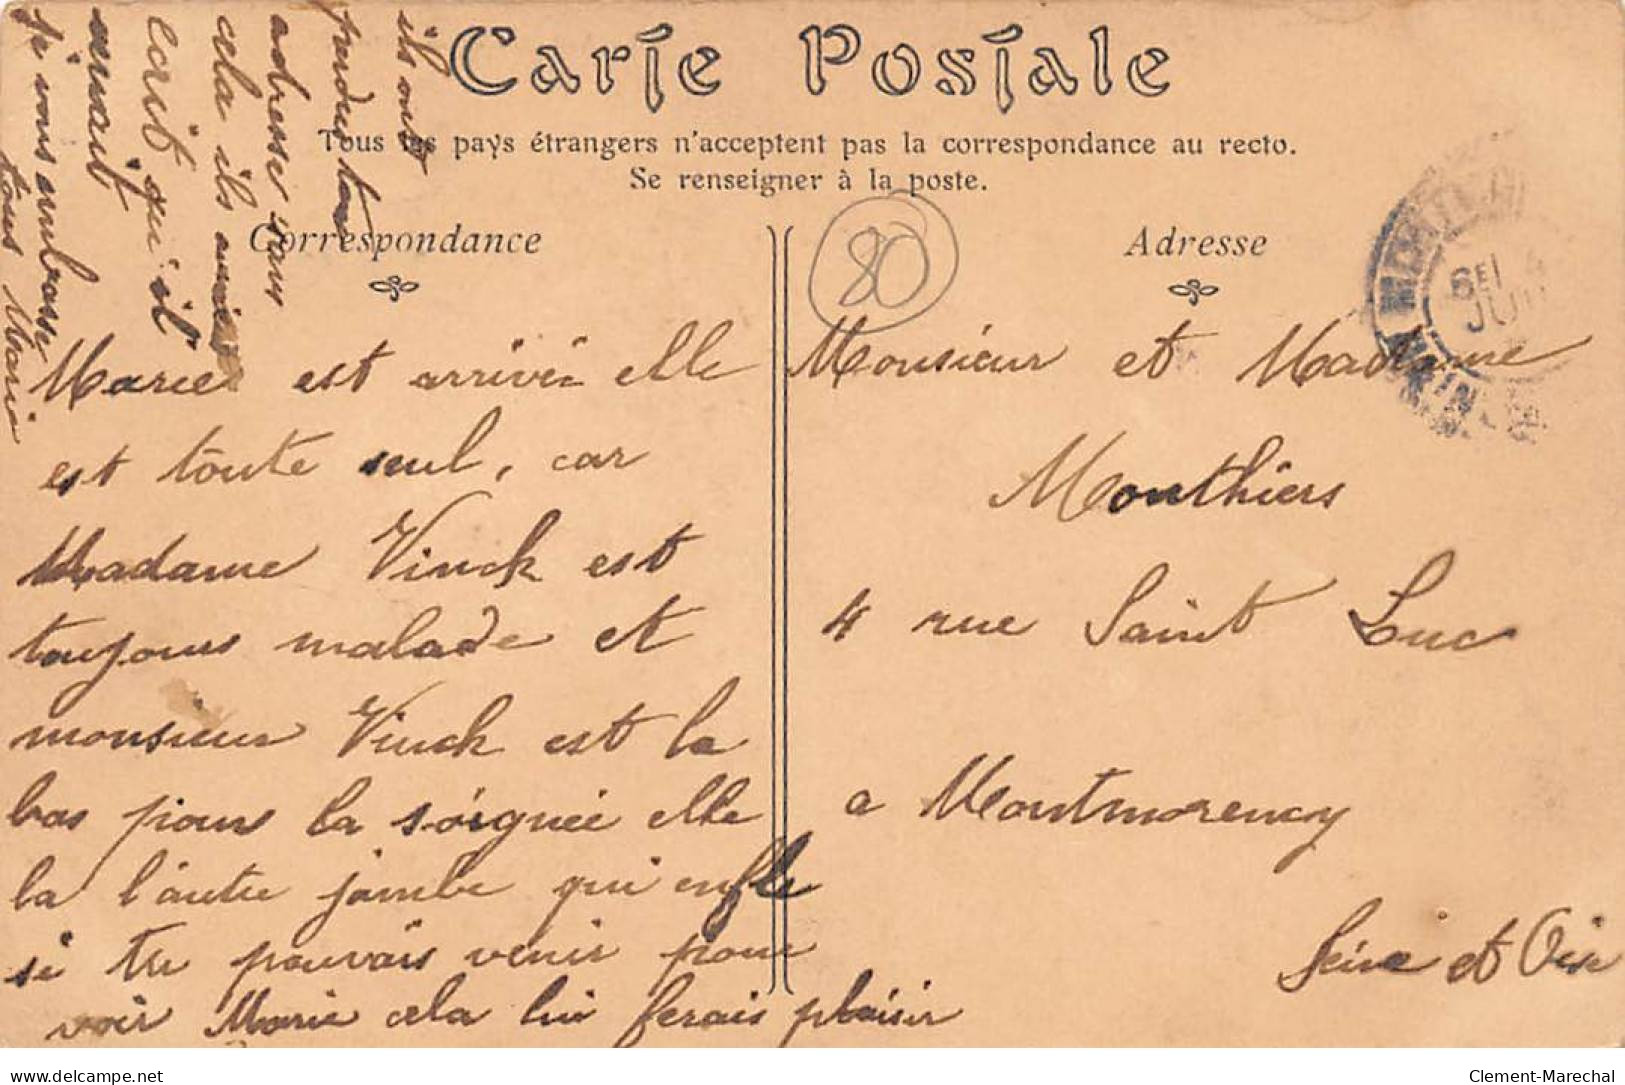 Carte Postale
Tous les pays étrangers n'acceptent pas la correspondance au recto.
Se renseigner à la poste.
Correspondance
Adresse
80
Marie est arrivée elle
est toute seul, car
Madame Vinck est
toujours malade et
monsieur Vinck est la
bas pour la soignée elle
la l'autre jambe qui enfle
si tu pouvais venir pour
voir Marie cela lui ferais plaisir
ils ont
perdus ton
adresse sans
cela ils
écrit qui il
je vous embrasse
tous Marie
Monsieur et Madame
Monthiers
4 rue Saint Luc
a Montmorency
Seine et Oise
Clement-Marechal
delcampe.net